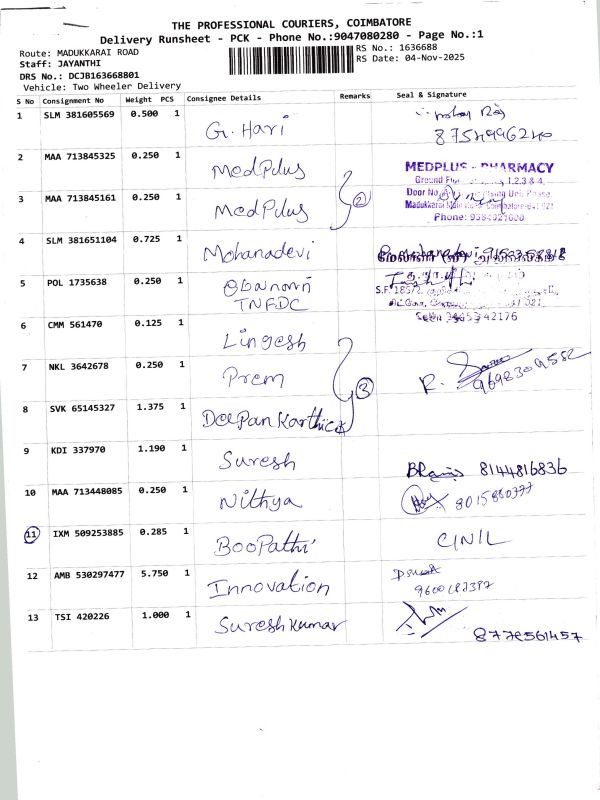 THE PROFESSIONAL COURIERS, COIMBATORE
Delivery Runsheet - PCK - Phone No.:9047080280 - Page No.:1
Route: MADUKKARAI ROAD
Staff: JAYANTHI
DRS No.: DCJB163668801
Vehicle: Two Wheeler Delivery
RS No.: 1636688
RS Date: 04-Nov-2025
S No Consignment No Weight PCS Consignee Details Remarks Seal & Signature
1 SLM 381605569 0.500 1 G. Hari
2 MAA 713845325 0.250 1 MedPlus
MEDPLUS - PHARMACY
3 MAA 713845161 0.250 1 MedPlus 2
Phone:
4 SLM 381651104 0.725 1 Mohanadevi
5 POL 1735638 0.250 1
TNFDC
6 CMM 561470 0.125 1 Lingesh
7 NKL 3642678 0.250 1 Prem 3 R. 9698309582
8 SVK 65145327 1.375 1 Deepan Karthick
9 KDI 337970 1.190 1 Suresh 8144816836
10 MAA 713448085 0.250 1 Nithya
11 IXM 509253885 0.285 1 BooPathi CINIL
12 AMB 530297477 5.750 1 Innovation
13 TSI 420226 1.000 1 Suresh kumar